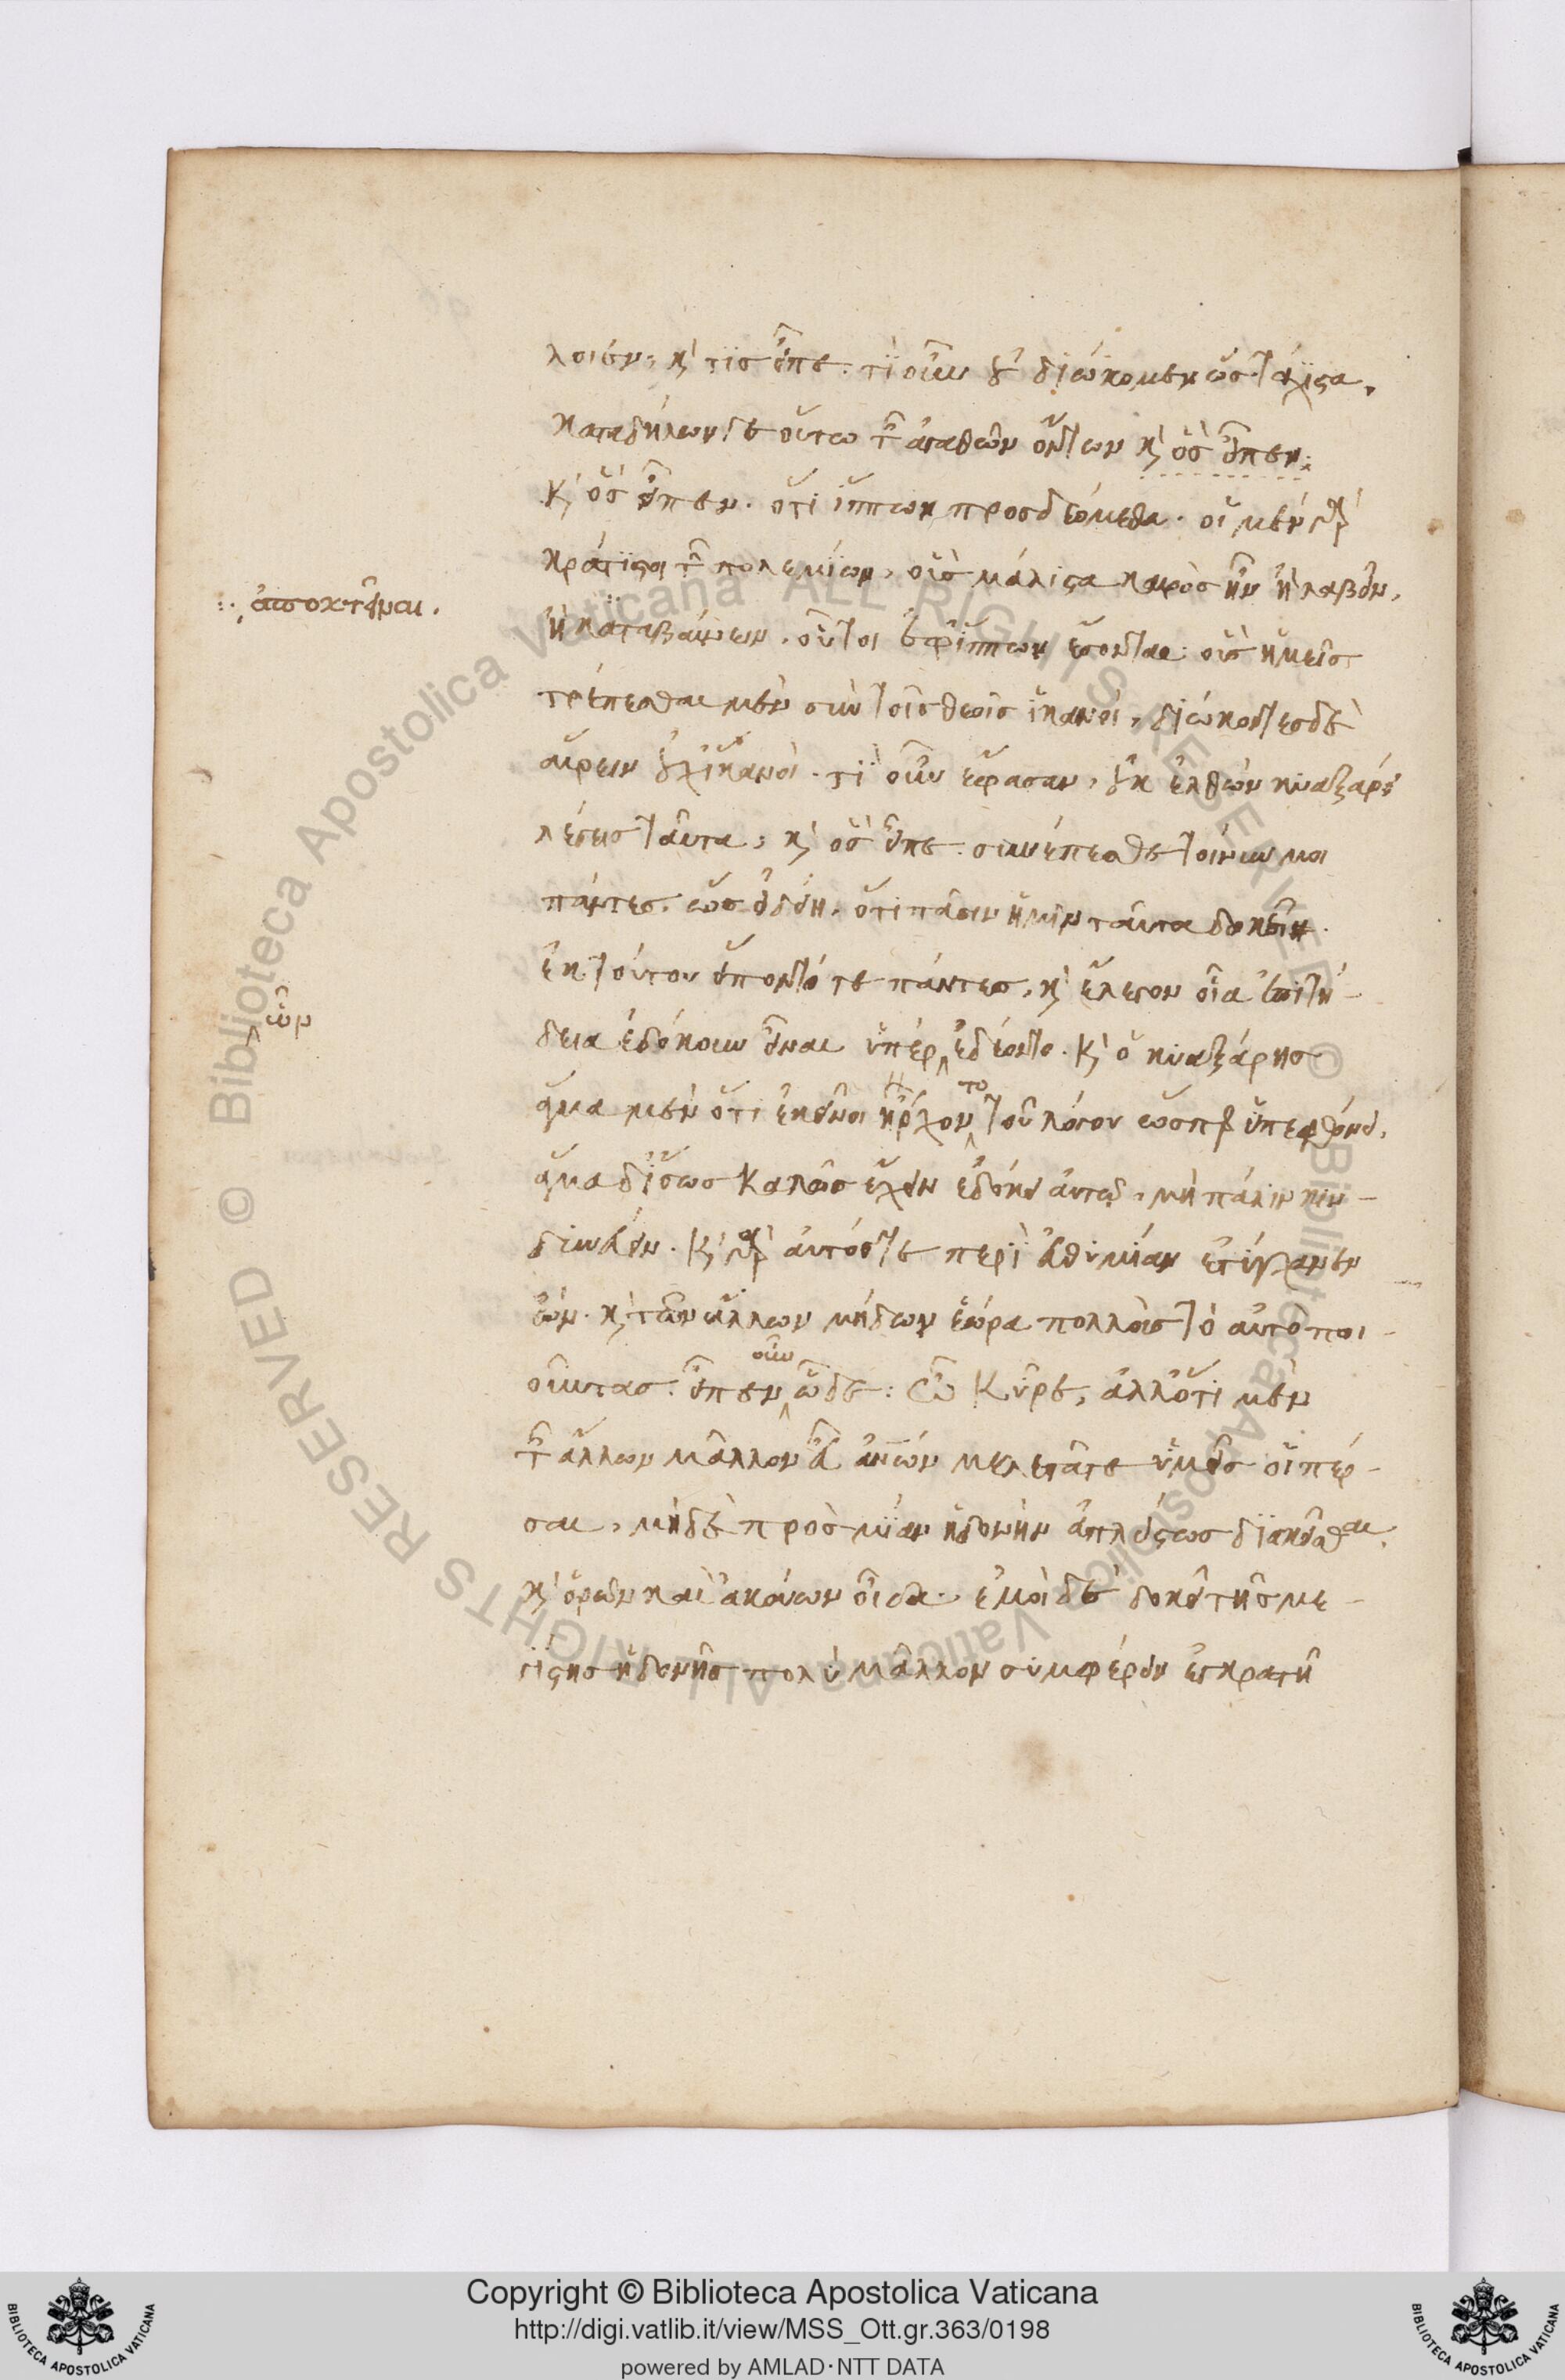 λοιεν; κὶ τὶς εἶπε. τί οὖν οὐ διώκομεν ὡς τάχιστα,
καταδήλων γε οὕτω τῶν ἀγαθῶν ὄντων κὶ ὃς εἶπεν;
Κὶ ὃς εἶπεν. ὅτι ἵππων προσδεόμεθα. οἱ μὲν γὰρ
κράτιστοι τῶν πολεμίων, οὓς μάλιστα καιρὸς ἦν ἢ λαβεῖν,
ἀποκτεῖναι.
ἢ κατακαίνειν. οὗτοι ἐφ' ἵππων ἔσονται: οὓς ἡμεῖς
τρέπεσθαι μὲν σὺν τοῖς θεοῖς ἱκανοί, διώκοντες δὲ
αἱρεῖν οὐχ ἱκανοί. τί οὖν ἔφασαν, οὐκ ἐλθὼν κυαξάρει
λέγεις ταῦτα; κὶ ὃς εἶπε. συνέπεσθε τοίνυν μοι
πάντες. ὡς εἰδείη. ὅτι πᾶσιν ἡμῖν ταῦτα δοκεῖ.
ἐκ τούτου εἵποντό τε πάντες, κὶ ἔλεγον οἷα ἐπιτή-
ὧν
δεια ἐδόκουν εἶναι ὑπὲρ ἐδέοντο. Κὶ ὁ κυαξάρης
ἅμα μὲν ὅτι ἐκεῖνοι ἦρχον το τοῦ λόγου ὥσπερ ὑπεφθόνει,
ἅμα δ' ἴσως καλῶς ἔχειν ἐδόκει αὐτῷ, μὴ πάλιν κιν-
δυνεύειν. Κὶ γὰρ αὐτός τε περὶ εὐθυμίαν ἐτύγχανεν
ὤν. κὶ τῶν ἄλλων μήδων ἑώρα πολλοὺς τὸ αὐτὸ ποι-
οῦντας. εἶπεν οὖν ὧδε: Ὦ Κῦρε, ἀλλ' ὅτι μὲν
τῶν ἄλλων μᾶλλον ἀνθρώπων μελετᾶτε ὑμεῖς οἱ πέρ-
σαι, μηδὲ πρὸς μίαν ἡδονὴν ἀπλήστως διακεῖσθαι,
κὶ ὁρῶν καὶ ἀκούων οἶδα. ἐμοὶ δὲ δοκεῖ τῆς με-
γίστης ἡδονῆς πολὺ μᾶλλον συμφέρειν ἐγκρατῆ
Copyright © Biblioteca Apostolica Vaticana
http://digi.vatlib.it/view/MSS_Ott.gr.363/0198
powered by AMLAD·NTT DATA